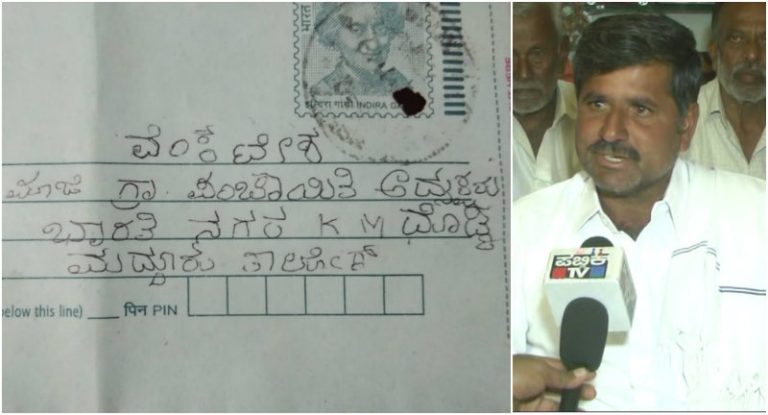 भारत
इन्दिरा गांधी INDIRA GA
ವೆಂಕಟೇಶ
ಮಾಜಿ ಗ್ರಾ. ಪಂಚಾಯಿತಿ ಅಧ್ಯಕ್ಷರು
ಭಾರತಿ ನಗರ K M ದೊಡ್ಡಿ
ಮದ್ದೂರು ತಾಲೋಕ್
below this line) पिन PIN
ಪಬ್ಲಿಕ್
TV